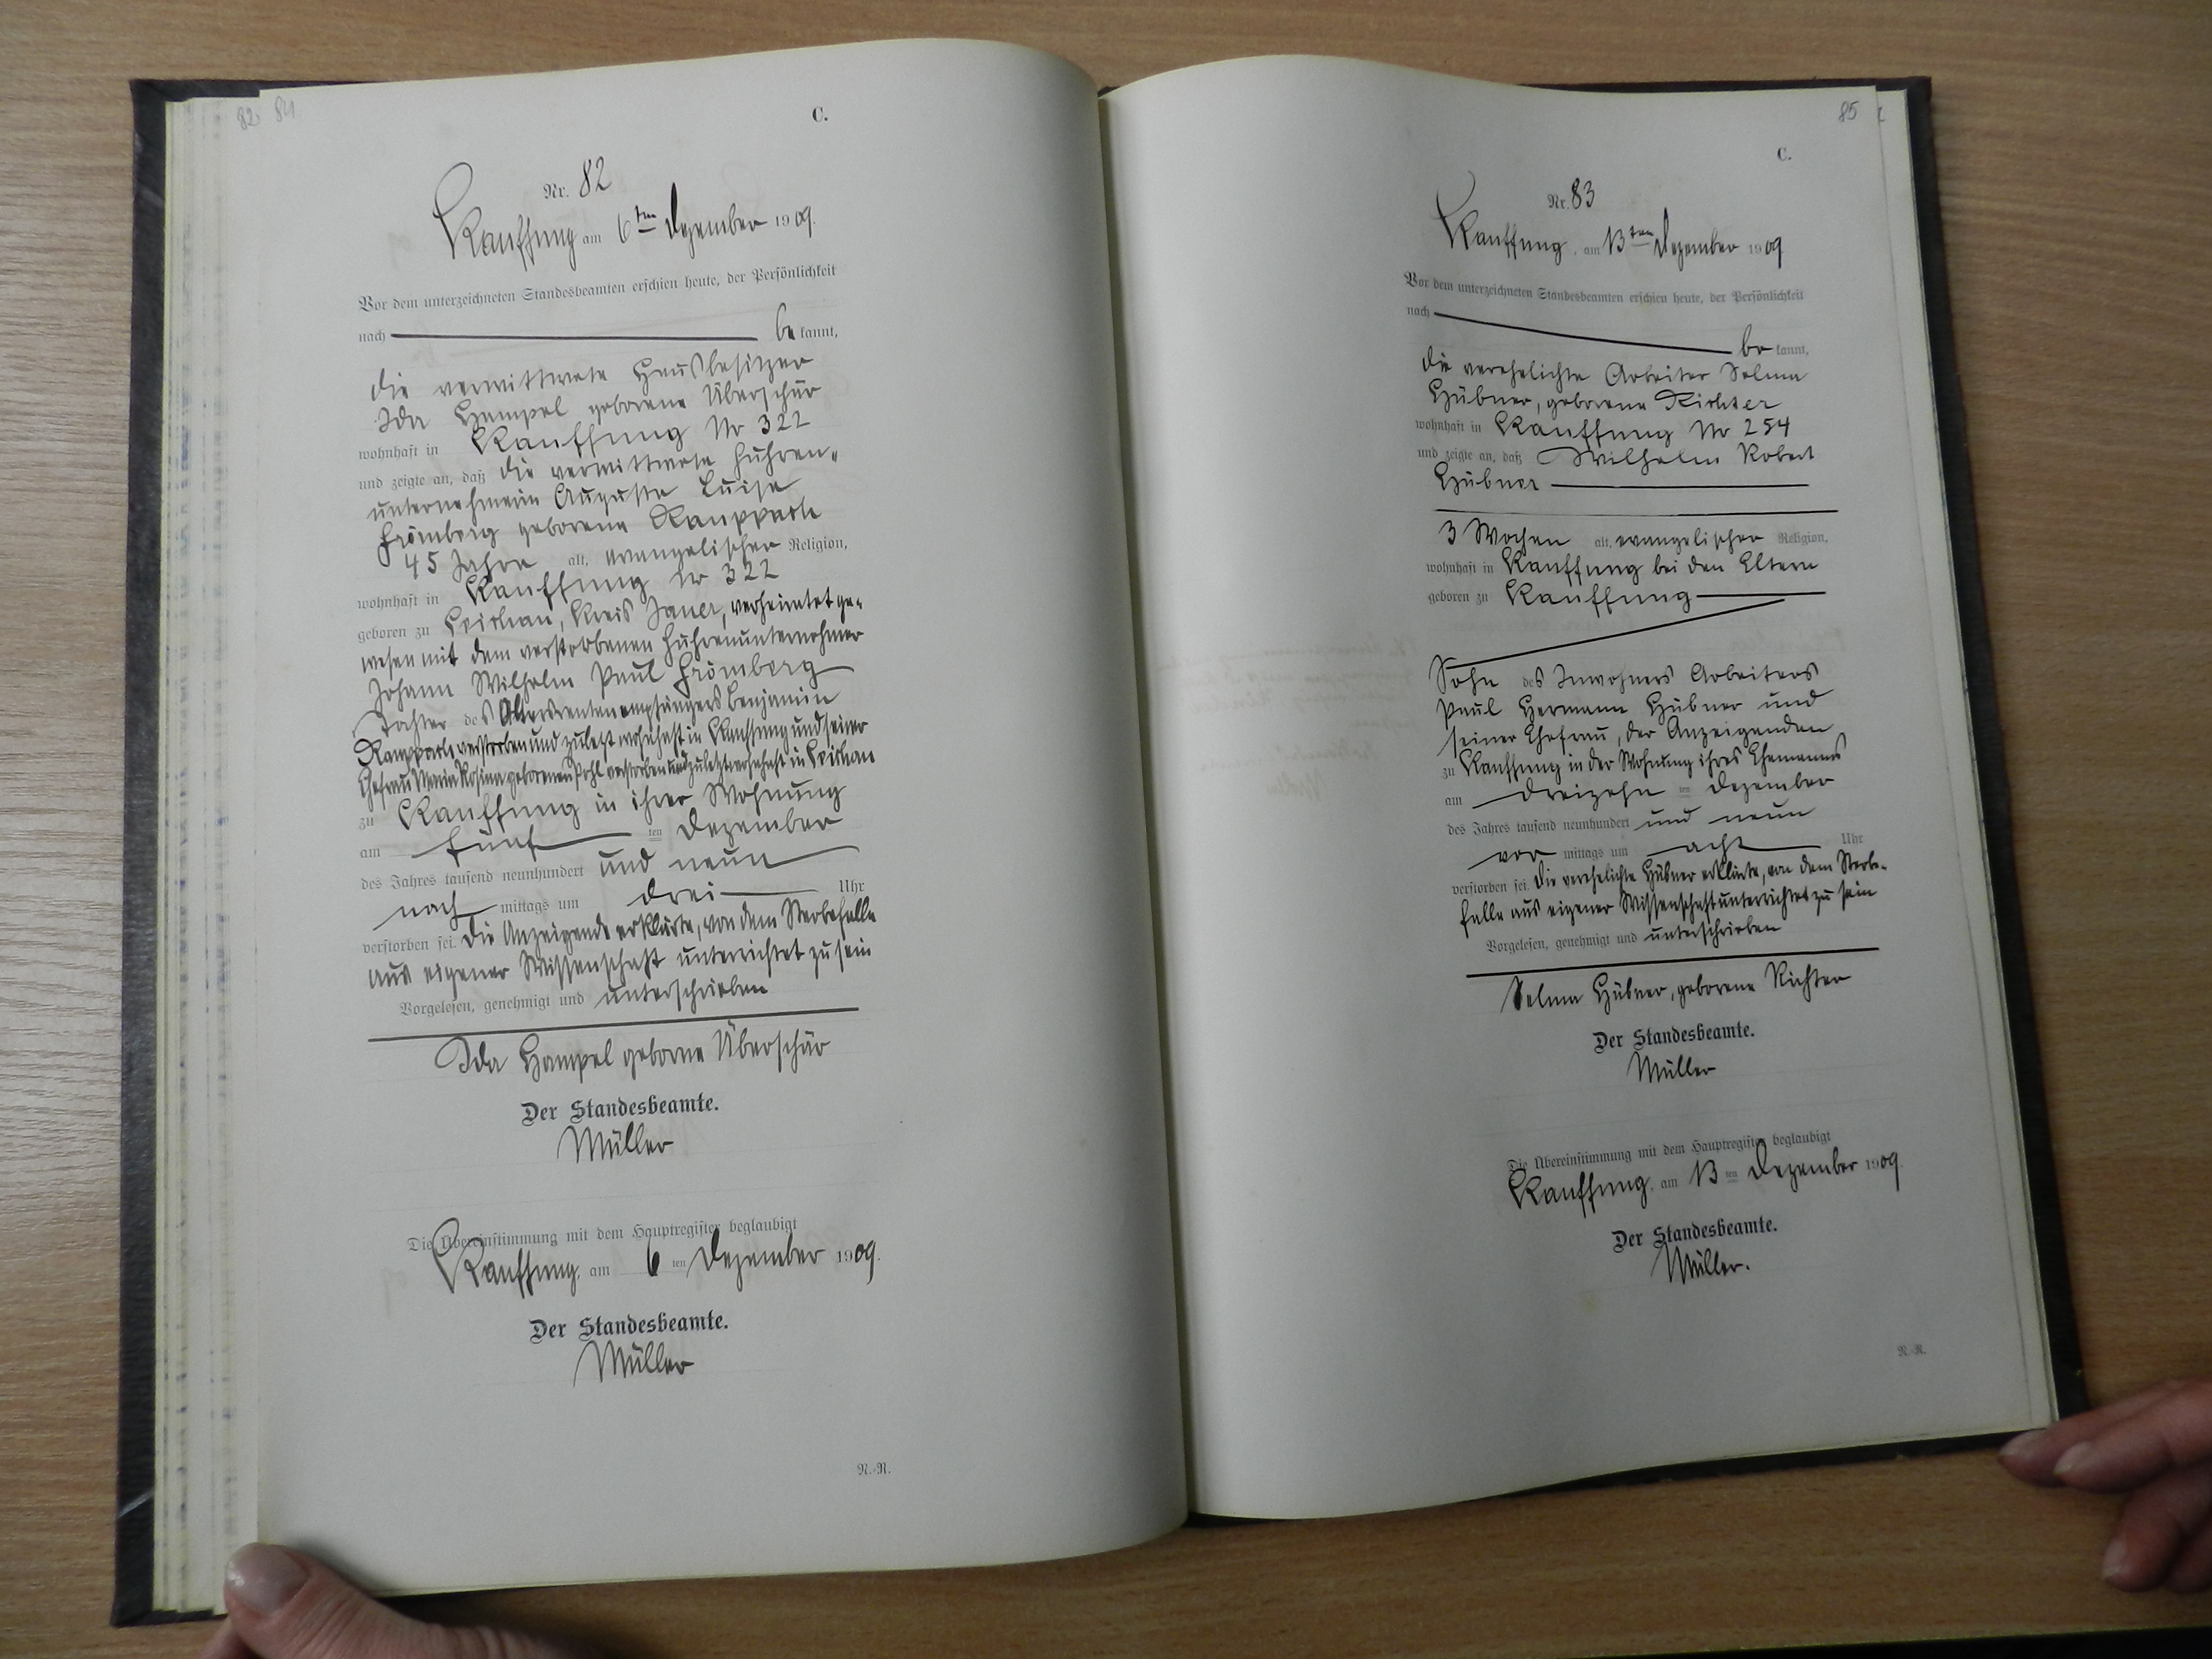 82 84
C.
Nr. 82
Kauffung am 6ten Dezember 1909.
Vor dem unterzeichneten Standesbeamten erschien heute, der Persönlichkeit
nach be kannt,
die verwittwete Hausbesitzer
Ida Hampel geborene Überschär
wohnhaft in Kauffung Nr 322
und zeigte an, daß die verwittwete Fuhren-
unternehmerin Auguste Luise
Frömberg geborene Raupach
45 Jahre alt, evangelischer Religion,
wohnhaft in Kauffung Nr 322
geboren zu Leipe, Kreis Jauer, verheiratet ge-
wesen mit dem verstorbenen Fuhrenunternehmer
Johann Wilhelm Paul Frömberg
Tochter des Altersrentenempfängers Benjamin
verstorben und zuletzt wohnhaft in Kauffung und seiner
Ehefrau Maria Rosina geborenen Pohl verstorben und zuletzt wohnhaft in
zu Kauffung in ihrer Wohnung
am fünf ten Dezember
des Jahres tausend neunhundert und neun
nach mittags um drei Uhr
verstorben sei. Die Anzeigende erklärte, von dem Sterbefalle
aus eigener Wissenschaft unterrichtet zu sein
Vorgelesen, genehmigt und unterschrieben
Ida Hampel geborne Überschär
Der Standesbeamte.
Müller
Die Übereinstimmung mit dem Hauptregister beglaubigt
Kauffung, am 6 ten Dezember 1909.
Der Standesbeamte.
Müller
N.-R.
85
C.
Nr. 83
Kauffung, am 13ten Dezember 1909
Vor dem unterzeichneten Standesbeamten erschien heute, der Persönlichkeit
nach be kannt,
die verehelichte Arbeiter Selma
Hübner, geborene Richter
wohnhaft in Kauffung Nr 254
und zeigte an, daß Wilhelm Robert
Hübner
3 Wochen alt, evangelischer Religion,
wohnhaft in Kauffung bei den Eltern
geboren zu Kauffung
Sohn des Inwohners Arbeiters
Paul Hermann Hübner und
seiner Ehefrau, der Anzeigenden
zu Kauffung in der Wohnung ihres Ehemannes
am dreizehn ten Dezember
des Jahres tausend neunhundert und neun
vor mittags um acht Uhr
verstorben sei. Die verehelichte Hübner erklärte, von dem Sterbe-
falle aus eigener Wissenschaft unterrichtet zu sein
Vorgelesen, genehmigt und unterschrieben
Selma Hübner, geborene Richter
Der Standesbeamte.
Müller
Die Übereinstimmung mit dem Hauptregister beglaubigt
Kauffung, am 13 ten Dezember 1909.
Der Standesbeamte.
Müller.
N.-R.